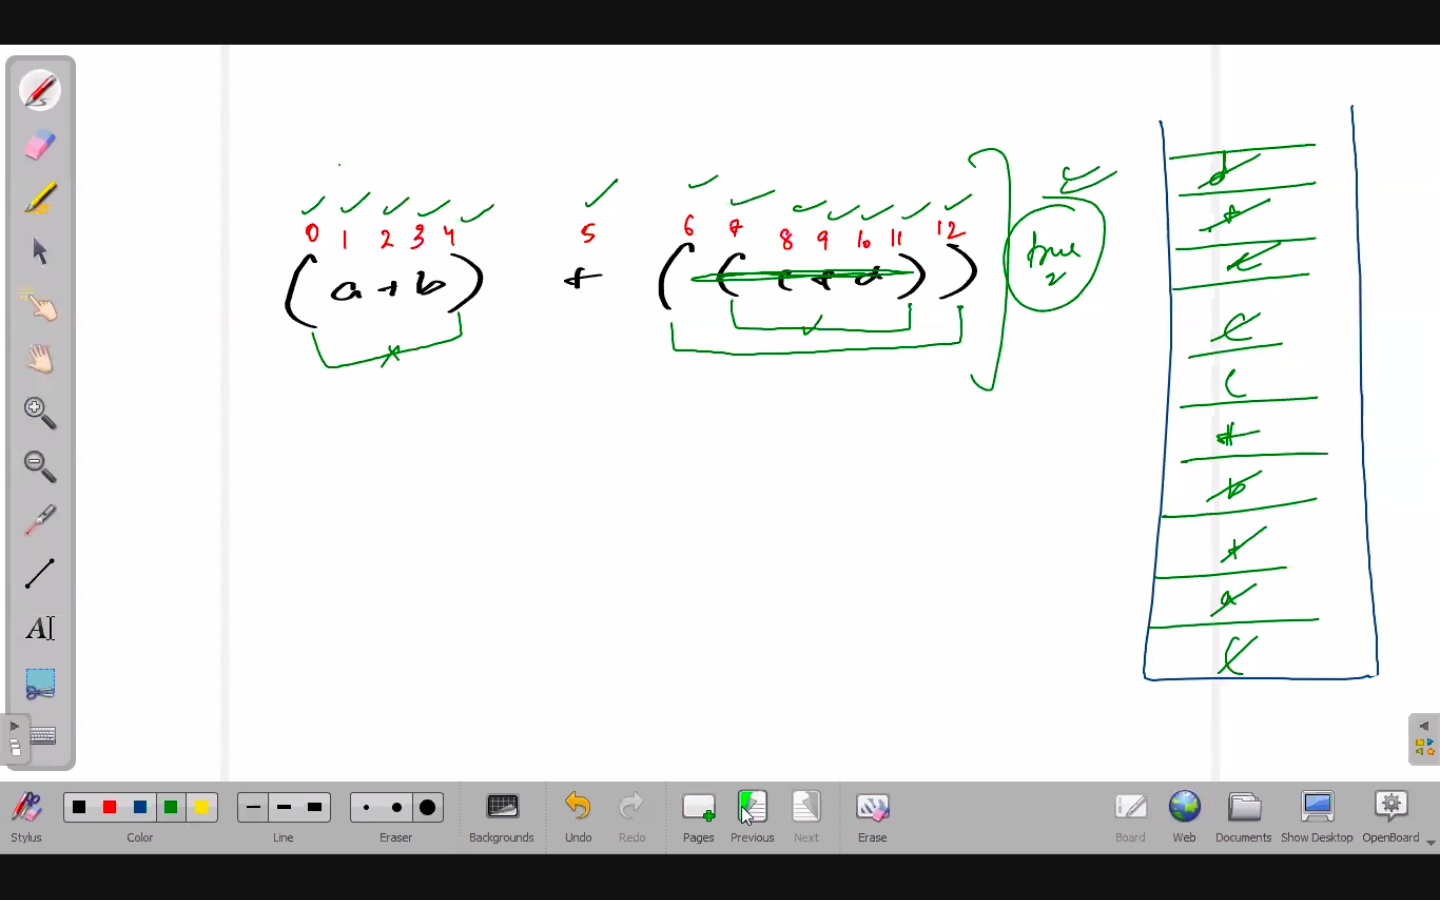 0 1 2 3 4 5 6 7 8 9 10 11 12
(a+b) + ((c+d))
true
d
+
c
(
(
+
b
+
a
(
Stylus Color Line Eraser Backgrounds Undo Redo Pages Previous Next Erase Board Web Documents Show Desktop OpenBoard